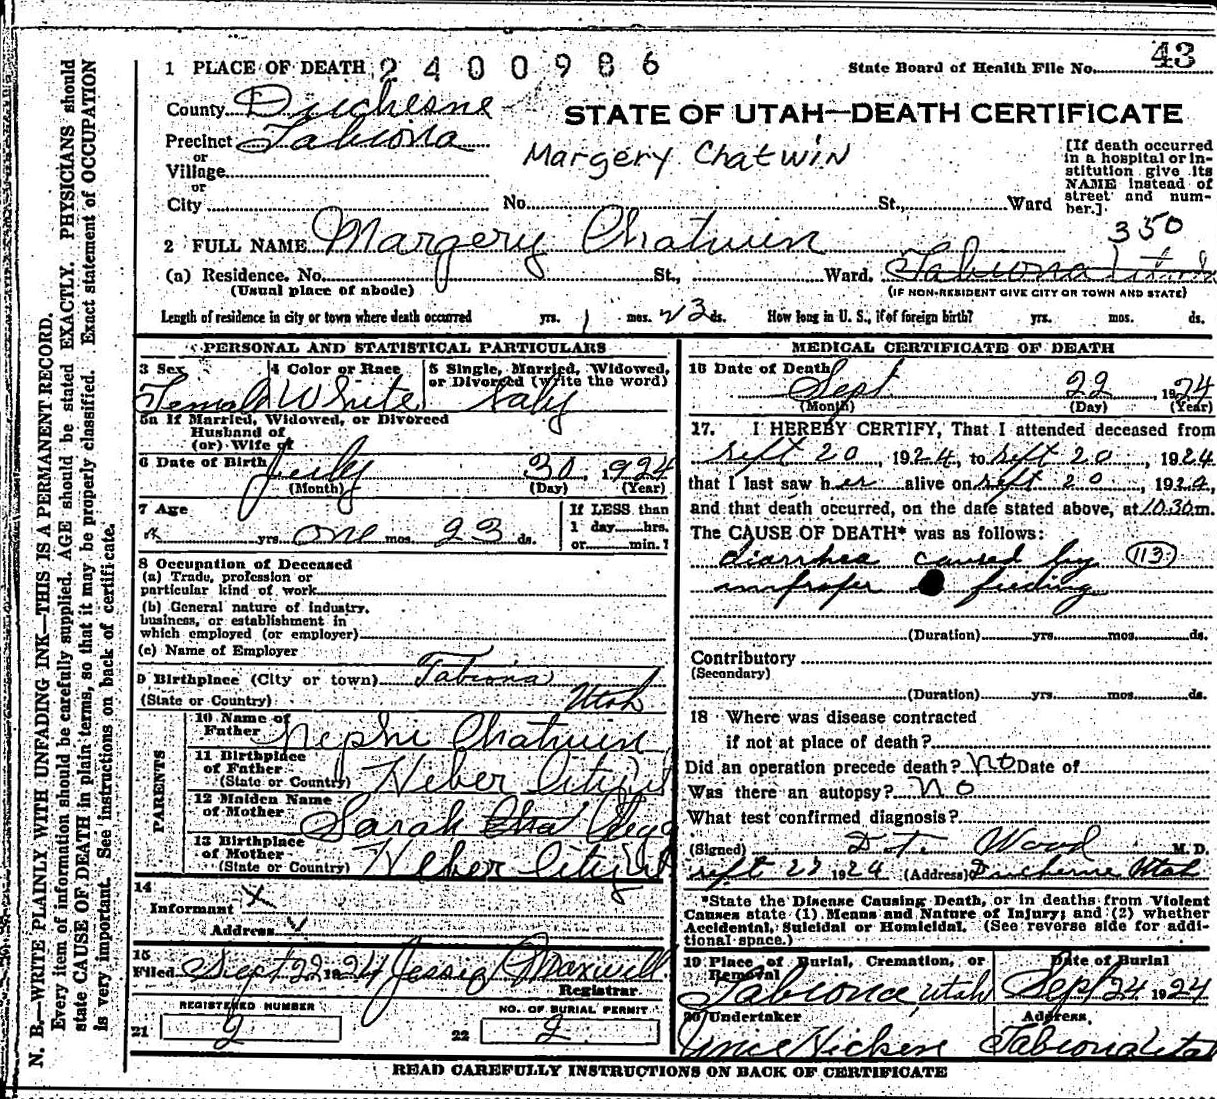 43
1 PLACE OF DEATH 2400986 State Board of Health File No.
County Duchesne
STATE OF UTAH—DEATH CERTIFICATE
Precinct Tabiona
or
Village
or
City No. St., Ward
Margery Chatwin
[If death occurred in a hospital or institution give its NAME instead of street and number.]
350
2 FULL NAME Margery Chatwin
(a) Residence. No. St., Ward. Tabiona Utah
(Usual place of abode) (IF NON-RESIDENT GIVE CITY OR TOWN AND STATE)
Length of residence in city or town where death occurred yrs. 1 mos. 23 ds. How long in U. S., if of foreign birth? yrs. mos. ds.
PERSONAL AND STATISTICAL PARTICULARS
3 Sex 4 Color or Race 5 Single, Married, Widowed, or Divorced (write the word)
Female White baby
5a If Married, Widowed, or Divorced
Husband of
(or) Wife of
6 Date of Birth July 30, 1924
(Month) (Day) (Year)
7 Age If LESS than
yrs. one mos. 23 ds. 1 day hrs.
or min.?
8 Occupation of Deceased
(a) Trade, profession or
particular kind of work
(b) General nature of industry,
business, or establishment in
which employed (or employer)
(c) Name of Employer
9 Birthplace (City or town) Tabiona
(State or Country) Utah
PARENTS
10 Name of Father Nephi Chatwin
11 Birthplace of Father (State or Country) Heber City Ut
12 Maiden Name of Mother Sarah Clegg
13 Birthplace of Mother (State or Country) Heber City Ut
14
Informant X
Address
15
Filed Sept 22 1924 Jessie Maxwell
Registrar
REGISTERED NUMBER NO. OF BURIAL PERMIT
21 2 22 2
MEDICAL CERTIFICATE OF DEATH
16 Date of Death
Sept 22, 1924
(Month) (Day) (Year)
17. I HEREBY CERTIFY, That I attended deceased from
Sept 20, 1924, to Sept 20, 1924
that I last saw her alive on Sept 20, 1924,
and that death occurred, on the date stated above, at 10:30 m.
The CAUSE OF DEATH* was as follows:
diarrhea caused by 113
improper feeding
(Duration) yrs. mos. ds.
Contributory
(Secondary)
(Duration) yrs. mos. ds.
18 Where was disease contracted
if not at place of death?
Did an operation precede death? No Date of
Was there an autopsy? No
What test confirmed diagnosis?
(Signed) Wood M. D.
Sept 22 1924 (Address) Duchesne Utah
*State the Disease Causing Death, or in deaths from Violent
Causes state (1) Means and Nature of Injury; and (2) whether
Accidental, Suicidal or Homicidal. (See reverse side for additional space.)
19 Place of Burial, Cremation, or Removal Date of Burial
Tabiona, Utah Sept 24 1924
20 Undertaker Address
Vince Hicken Tabiona Utah
READ CAREFULLY INSTRUCTIONS ON BACK OF CERTIFICATE
N. B.—WRITE PLAINLY WITH UNFADING INK—THIS IS A PERMANENT RECORD.
Every item of information should be carefully supplied. AGE should be stated EXACTLY. PHYSICIANS should
state CAUSE OF DEATH in plain terms, so that it may be properly classified. Exact statement of OCCUPATION
is very important. See instructions on back of certificate.